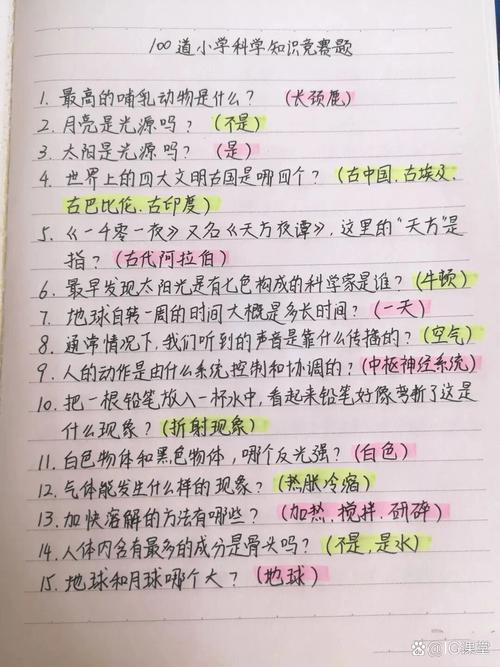 100道小学科学知识竞赛题
1. 最高的哺乳动物是什么？（长颈鹿）
2. 月亮是光源吗？（不是）
3. 太阳是光源吗？（是）
4. 世界上的四大文明古国是哪四个？（古中国.古埃及.
古巴比伦.古印度）
5.《一千零一夜》又名《天方夜谭》，这里的“天方”是
指？（古代阿拉伯）
6. 最早发现太阳光是有七色构成的科学家是谁？（牛顿）
7. 地球自转一周的时间大概是多长时间？（一天）
8. 通常情况下，我们听到的声音是靠什么传播的？（空气）
9. 人的动作是由什么系统控制和协调的？（中枢神经系统）
10. 把一根铅笔放入一杯水中，看起来铅笔好像弯折了这是
什么现象？（折射现象）
11. 白色物体和黑色物体，哪个反光强？（白色）
12. 气体能发生什么样的现象？（热胀冷缩）
13. 加快溶解的方法有哪些？（加热.搅拌.研碎）
14. 人体内含有最多的成分是骨头吗？（不是,是水）
15. 地球和月球哪个大？（地球）
@TG课堂